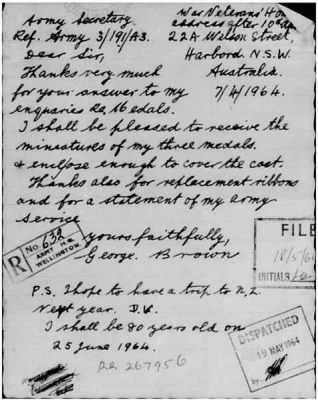 Army Secretary.
War Veterans' Home
address after 10th
Ref. Army 3/191/A3.
22A Wilson Street,
Dear Sir,
Harbord N.S.W.
Thanks very much
Australia.
for your answer to my
7/4/1964.
enquiries Re Medals.
I shall be pleased to receive the
miniatures of my three medals.
& enclose enough to cover the cost.
Thanks also for replacement ribbons
and for a statement of my Army
service
yours faithfully,
George Brown
R
No. 632
ARMY H.Q.
WELLINGTON.
FILE
18/5/64
INITIALS
P.S. I hope to have a trip to N.Z.
Next year. D.V.
I shall be 80 years old on
25 June 1964.
DISPATCHED
19 MAY 1964
by
267956